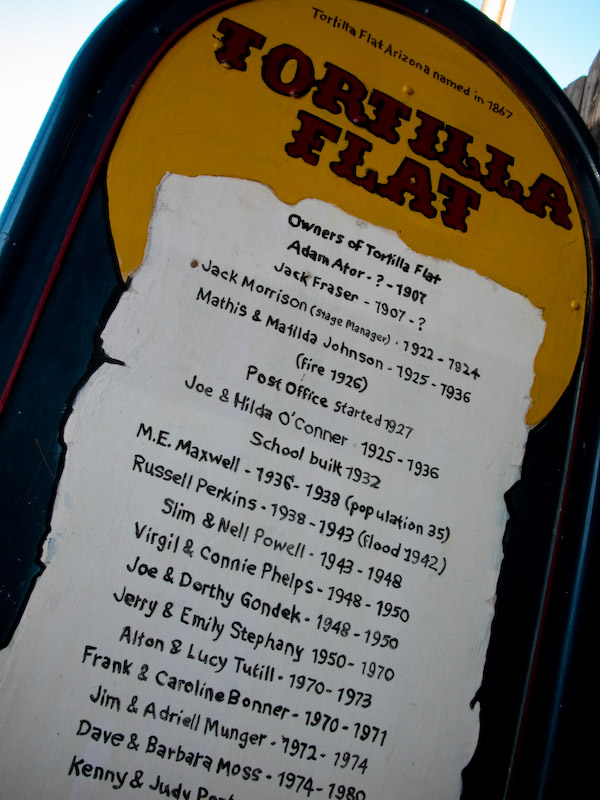 Tortilla Flat Arizona named in 1867
TORTILLA
FLAT
Owners of Tortilla Flat
Adam Ator - ? - 1907
Jack Fraser - 1907 - ?
Jack Morrison (Stage Manager) - 1922 - 1924
Mathis & Matilda Johnson - 1925 - 1936
(fire 1926)
Post Office Started 1927
Joe & Hilda O'Conner 1925 - 1936
School built 1932
M.E. Maxwell - 1936 - 1938 (population 35)
Russell Perkins - 1938 - 1943 (flood 1942)
Slim & Nell Powell - 1943 - 1948
Virgil & Connie Phelps - 1948 - 1950
Joe & Dorthy Gondek - 1948 - 1950
Jerry & Emily Stephany 1950 - 1970
Alton & Lucy Tutill - 1970 - 1973
Frank & Caroline Bonner - 1970 - 1971
Jim & Adriell Munger - 1972 - 1974
Dave & Barbara Moss - 1974 - 1980
Kenny & Judy